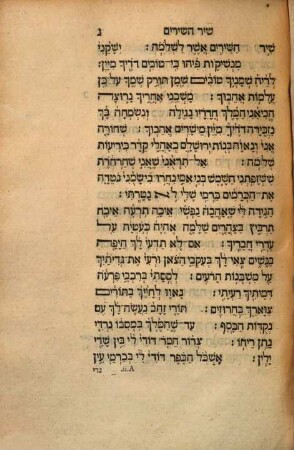 שיר השירים
ג
שיר השירים אשר לשלמה: ישקני
מנשיקות פיהו כי טובים דדיך מיין:
לריח שמניך טובים שמן תורק שמך על כן
עלמות אהבוך: משכני אחריך נרוצה
הביאני המלך חדריו נגילה ונשמחה בך
נזכירה דדיך מיין מישרים אהבוך: שחורה
אני ונאוה בנות ירושלם כאהלי קדר כיריעות
שלמה: אל תראני שאני שחרחרת
ששזפתני השמש בני אמי נחרו בי שמני נטרה
את הכרמים כרמי שלי לא נטרתי:
הגידה לי שאהבה נפשי איכה תרעה איכה
תרביץ בצהרים שלמה אהיה כעטיה על
עדרי חבריך: אם לא תדעי לך היפה
בנשים צאי לך בעקבי הצאן ורעי את גדיתיך
על משכנות הרעים: לססתי ברכבי פרעה
דמיתיך רעיתי: נאוו לחייך בתורים
צוארך בחרוזים: תורי זהב נעשה לך עם
נקדות הכסף: עד שהמלך במסבו נרדי
נתן ריחו: צרור המר דודי לי בין שדי
ילין: אשכל הכפר דודי לי בכרמי עין
A.ii. גדי